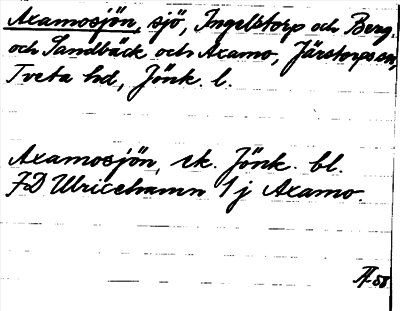 Axamosjön, sjö, Ingelstorp och Berg,
och Sandbäck och Axamo, Järstorps sn,
Tveta hd, Jönk. l.
Axamosjön, ek. Jönk. bl.
JD Ulricehamn 1 j Axamo.